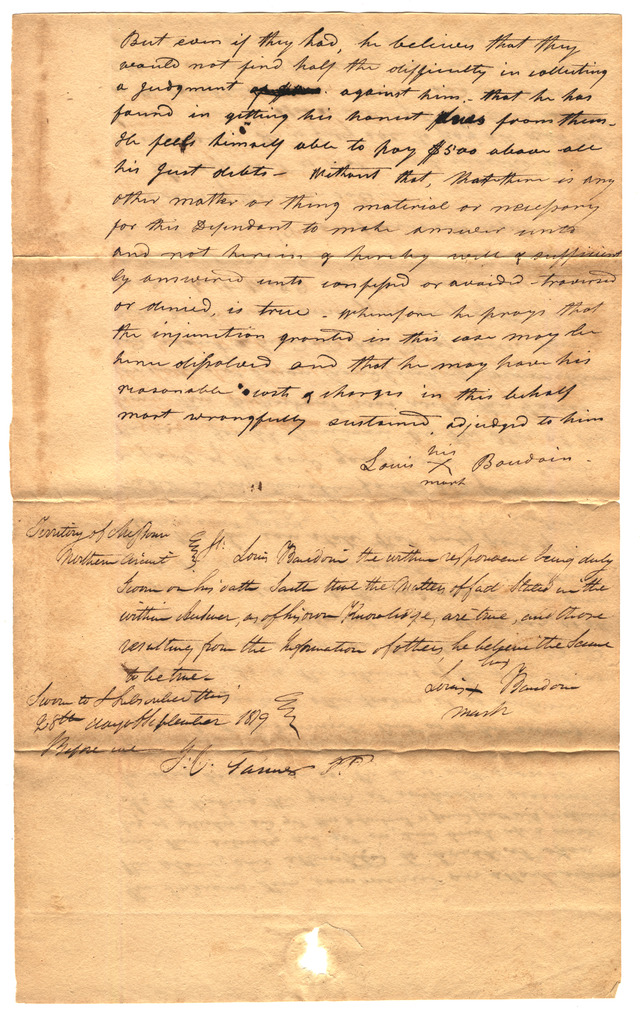 But even if they had, he believes that they
would not find half the difficulty in collecting
a judgment against him - that he has
found in getting his honest from them -
He feels himself able to pay $500 above all
his Just debts - Without that, that there is any
other matter or thing material or necessary
for this Defendant to make answer unto
and not herein & hereby well & sufficient
ly answered unto confessed or avoided traversed
or denied, is true - Wherefore he prays that
the injunction granted in this case may be
hence dissolved and that he may have his
reasonable costs & charges in this behalf
most wrongfully sustained, adjudged to him
Louis his X mark Baudoin -
Territory of Missouri
Northern Circuit } St. Louis Baudoin the within respondent being duly
Sworn on his oath Saith that the Matters of fact Stated in the
within Answer, as of his own Knowledge, are true, and those
resulting from the Information of others, he believes the Same
to be true -
Louis his X mark Baudoin
Sworn to & Subscribed this
28th day of September 1819
Before me
J. C. JP.